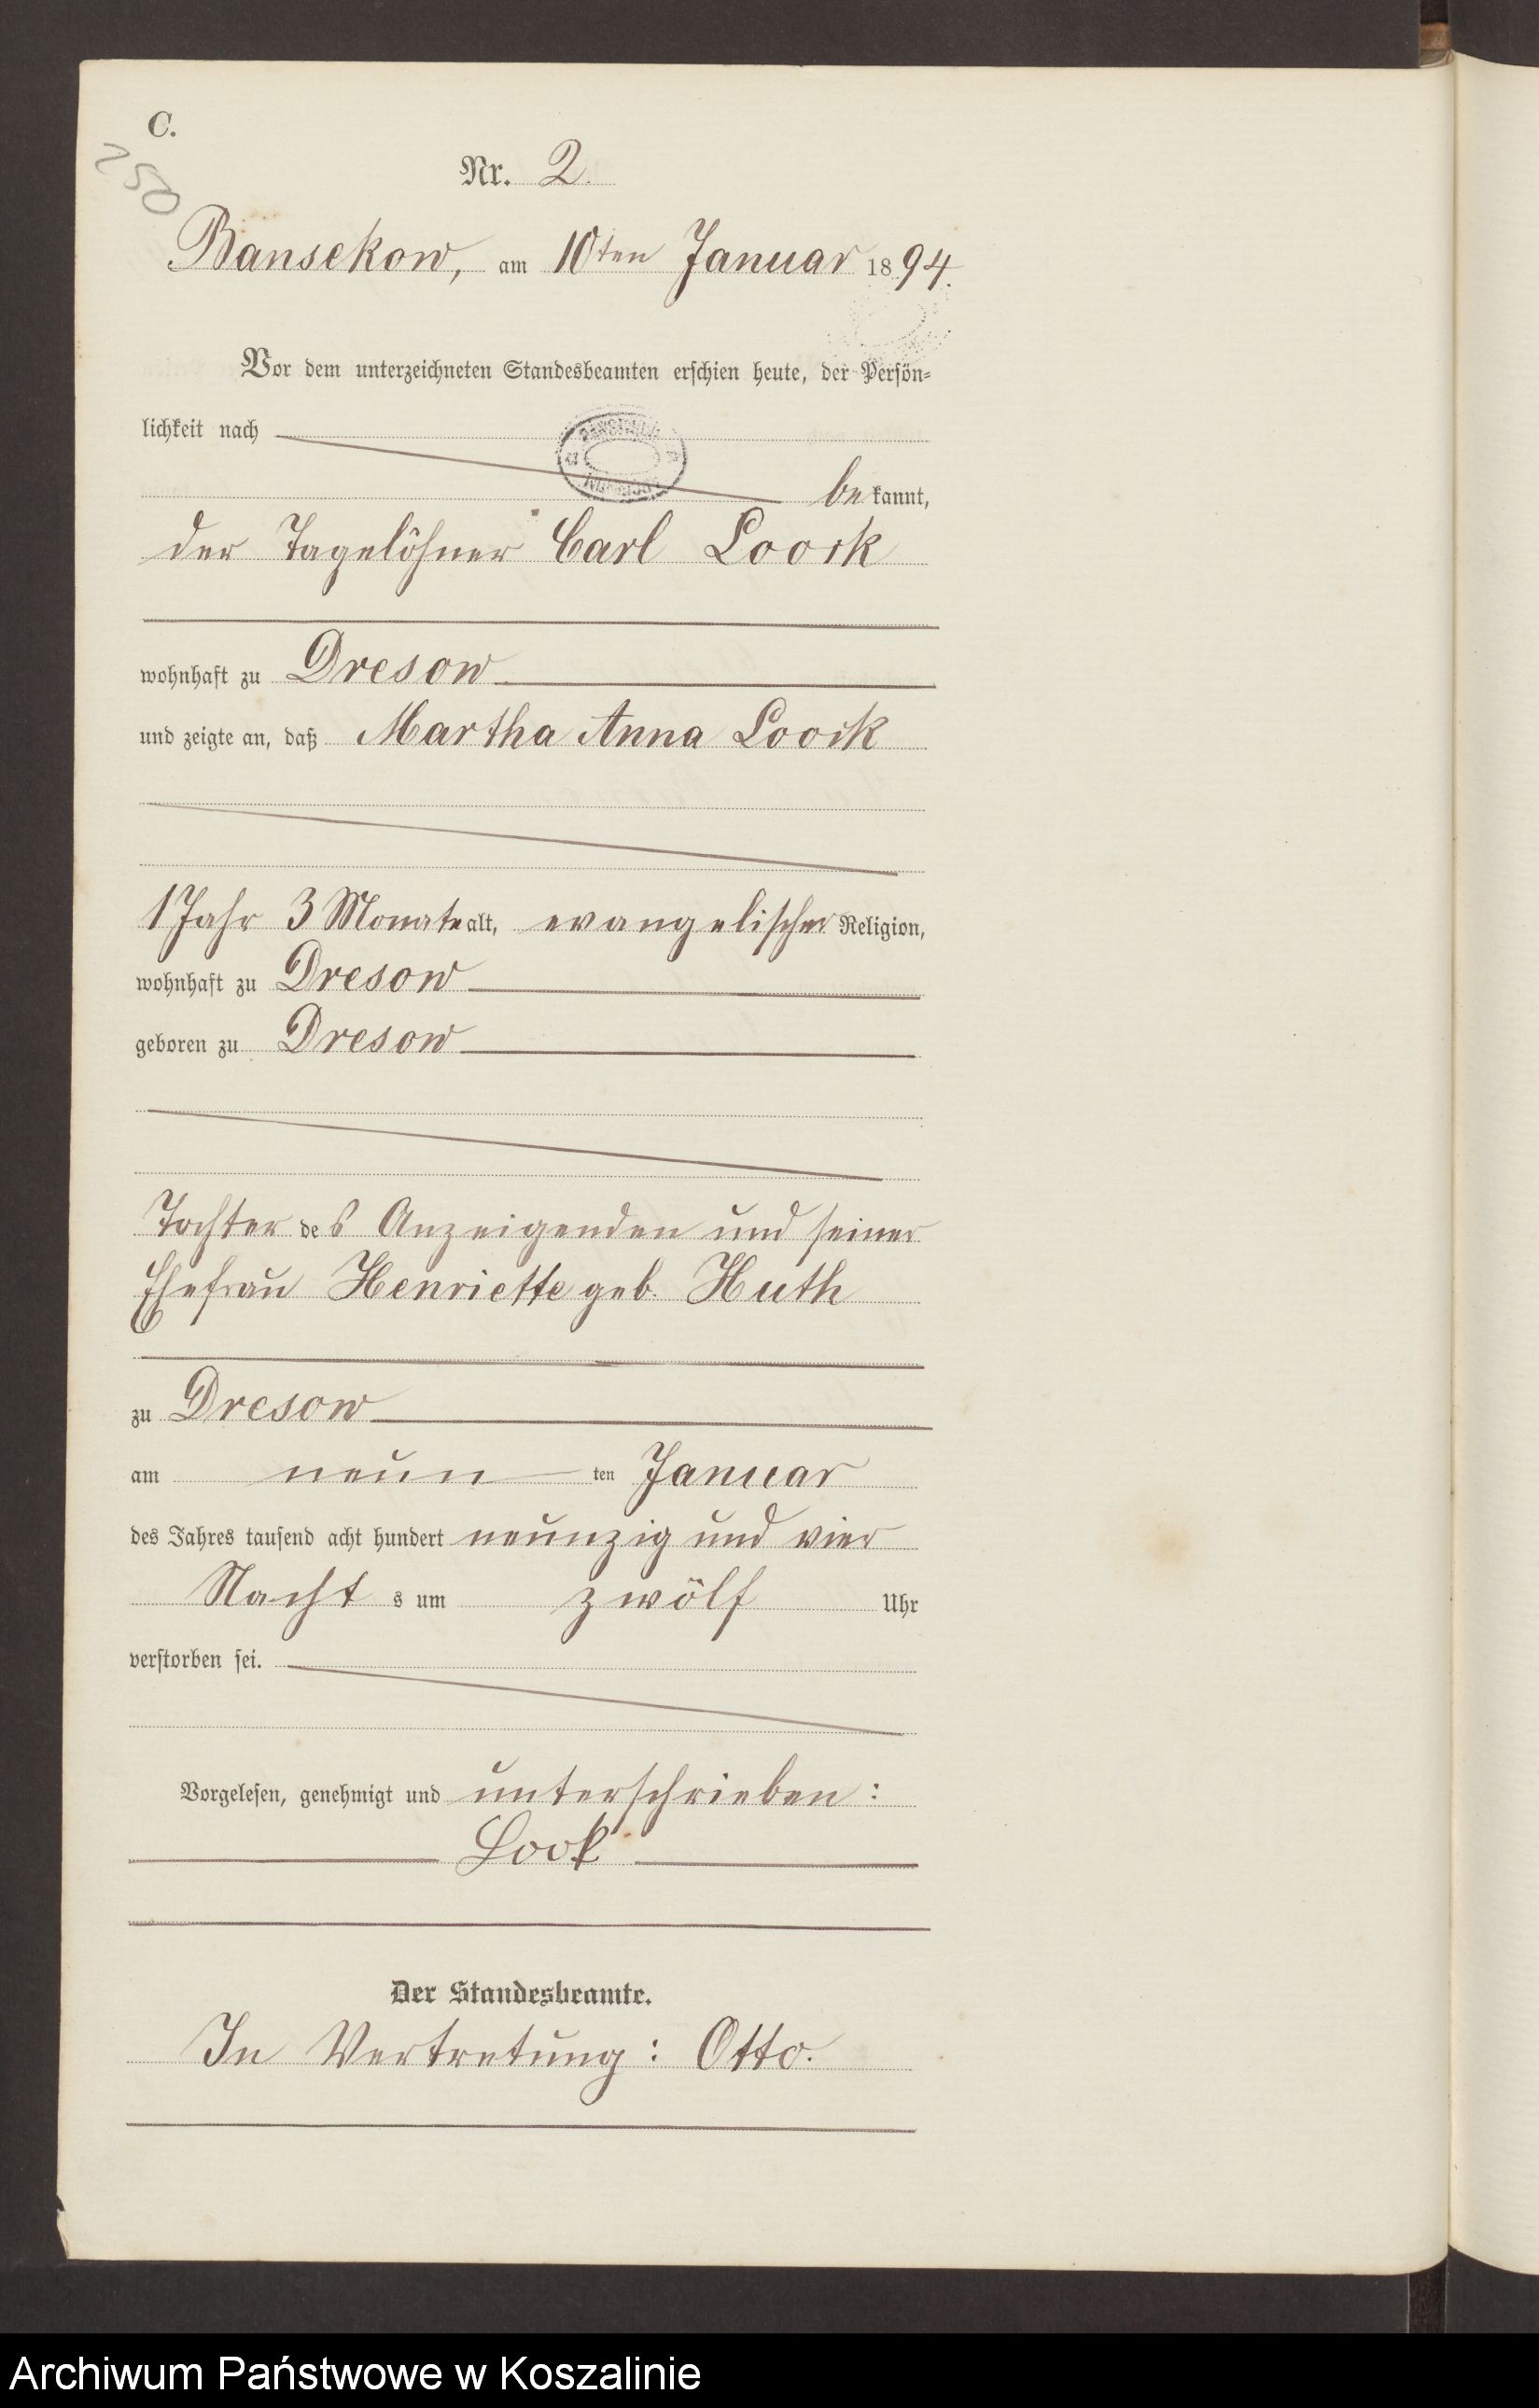 C.
250
Nr. 2.
Bansekow, am 10ten Januar 1894.
Vor dem unterzeichneten Standesbeamten erschien heute, der Persön-
lichkeit nach
bekannt,
der Tagelöhner Carl Loock
wohnhaft zu Dresow
und zeigte an, daß Martha Anna Loock
1 Jahr 3 Monate alt, evangelischer Religion,
wohnhaft zu Dresow
geboren zu Dresow
Tochter des Anzeigenden und seiner
Ehefrau Henriette geb. Huth
zu Dresow
am neun ten Januar
des Jahres tausend acht hundert neunzig und vier
Nacht s um zwölf Uhr
verstorben sei.
Vorgelesen, genehmigt und unterschrieben:
Look
Der Standesbeamte.
In Vertretung: Otto.
Archiwum Państwowe w Koszalinie